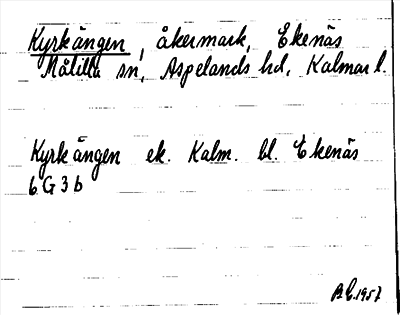 Kyrkängen, åkermark, Ekenäs
Målilla sn, Aspelands hd, Kalmar l.
Kyrkängen ek. Kalm. bl. Ekenäs
6 G 3 b
1957